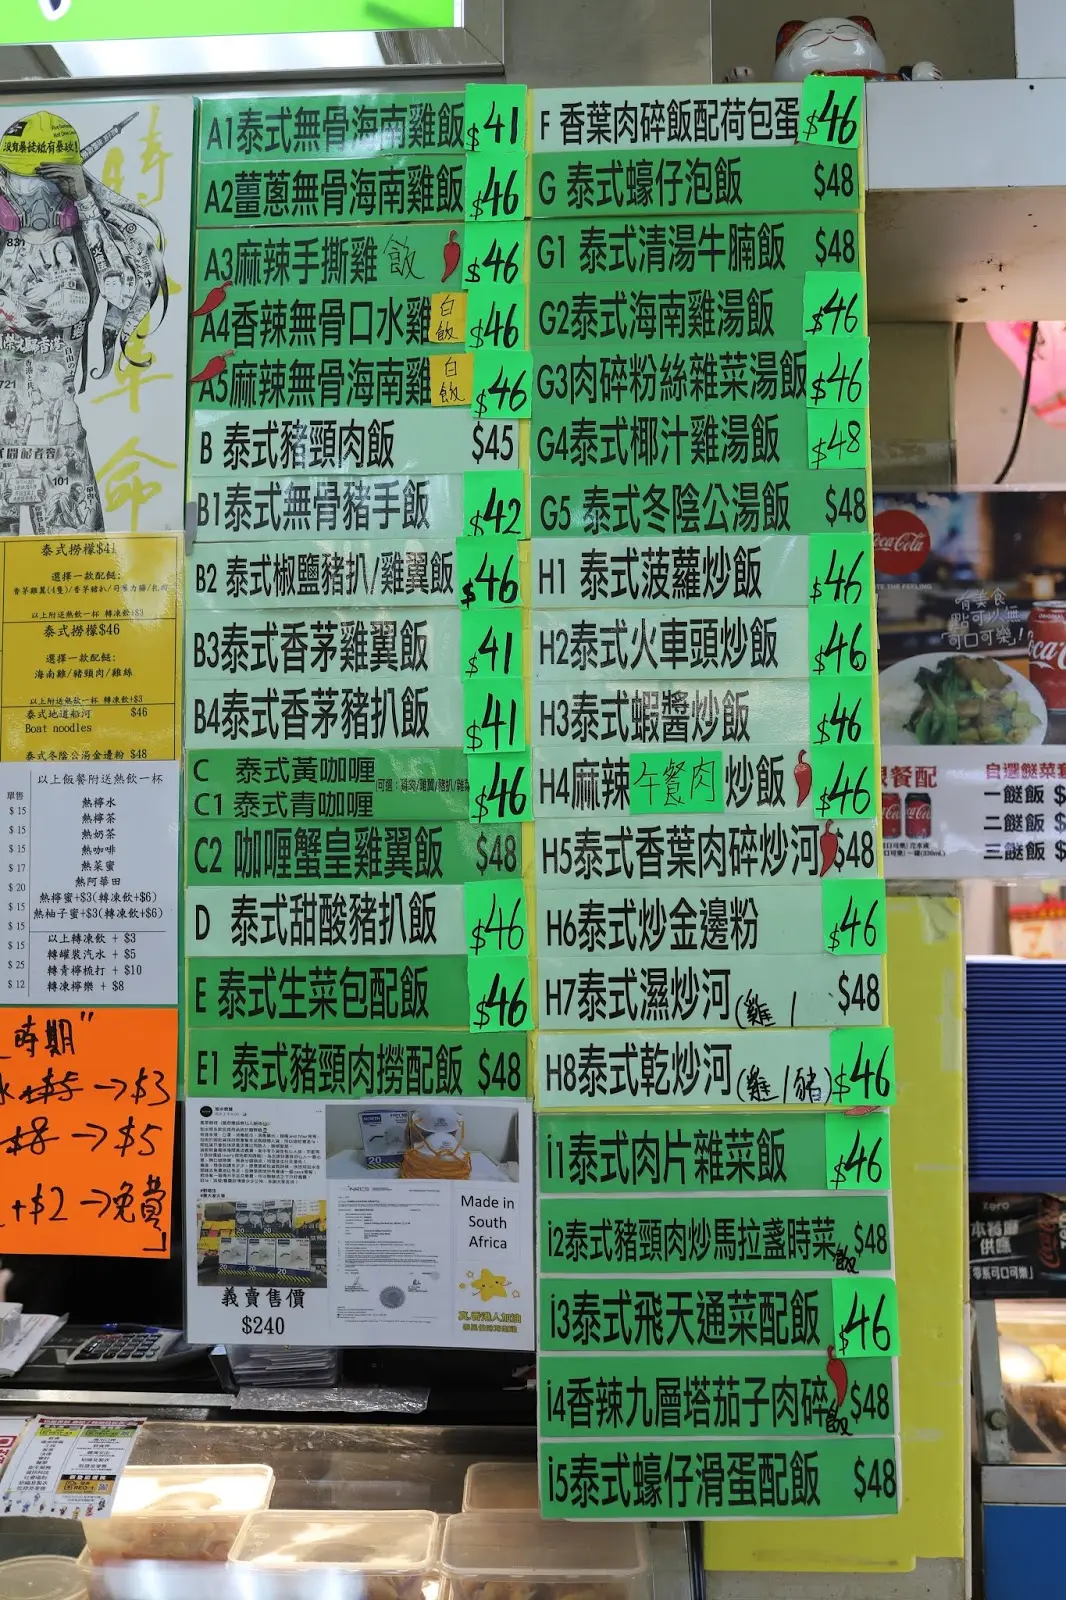 時
革
命
沒有暴徒祇有暴政!
831
721
101
泰式撈檬$41
選擇一款配餸:
以上附送熱飲一杯 轉凍飲+$3
泰式撈檬$46
選擇一款配餸:
海南雞/豬頸肉/雞絲
以上附送熱飲一杯 轉凍飲+$3
泰式地道船河 $46
Boat noodles
泰式冬陰公湯金邊粉 $48
以上飯餐附送熱飲一杯
單售
$15 熱檸水
$15 熱檸茶
熱奶茶
$15 熱咖啡
$17 熱菜蜜
$20 熱阿華田
$15 熱檸蜜+$3(轉凍飲+$6)
$15 熱柚子蜜+$3(轉凍飲+$6)
$15 以上轉凍飲 + $3
$15 轉罐裝汽水 + $5
$25 轉青檸梳打 + $10
$12 轉凍檸樂 + $8
時期"
$5 → $3
$8 → $5
+$2 → 免費
A1泰式無骨海南雞飯 $41
A2薑蔥無骨海南雞飯 $46
A3麻辣手撕雞飯 $46
A4香辣無骨口水雞白飯 $46
A5麻辣無骨海南雞白飯 $46
B 泰式豬頸肉飯 $45
B1泰式無骨豬手飯 $42
B2 泰式椒鹽豬扒/雞翼飯 $46
B3泰式香茅雞翼飯 $41
B4泰式香茅豬扒飯 $41
C 泰式黃咖喱
C1 泰式青咖喱 $46
C2 咖喱蟹皇雞翼飯 $48
D 泰式甜酸豬扒飯 $46
E 泰式生菜包配飯 $46
E1 泰式豬頸肉撈配飯 $48
義賣售價
$240
Made in
South
Africa
F 香葉肉碎飯配荷包蛋 $46
G 泰式蠔仔泡飯 $48
G1 泰式清湯牛腩飯 $48
G2泰式海南雞湯飯 $46
G3肉碎粉絲雜菜湯飯 $46
G4泰式椰汁雞湯飯 $48
G5 泰式冬陰公湯飯 $48
H1 泰式菠蘿炒飯 $46
H2泰式火車頭炒飯 $46
H3泰式蝦醬炒飯 $46
H4麻辣午餐肉炒飯 $46
H5泰式香葉肉碎炒河 $48
H6泰式炒金邊粉 $46
H7泰式濕炒河(雞/ $48
H8泰式乾炒河(雞/豬) $46
i1泰式肉片雜菜飯 $46
i2泰式豬頸肉炒馬拉盞時菜飯 $48
i3泰式飛天通菜配飯 $46
i4香辣九層塔茄子肉碎飯 $48
i5泰式蠔仔滑蛋配飯 $48
Coca-Cola
TE THE FEELING
有美食
點可以無
可口可樂!
餐配
自選餸菜
一餸飯 $
二餸飯 $
三餸飯 $
zero
本餐廳
供應
「零系可口可樂」